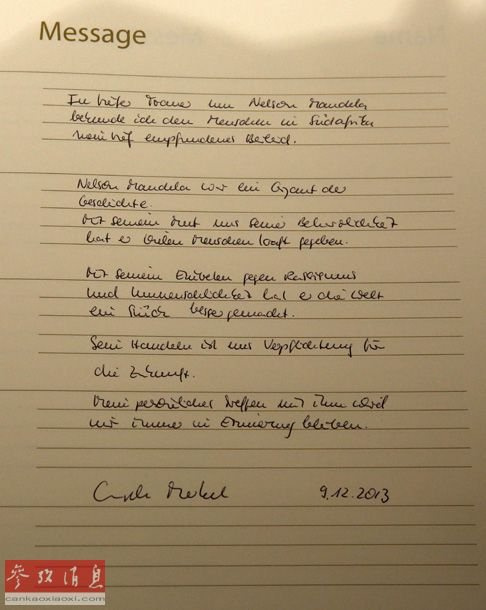 Message
In tiefer Trauer um Nelson Mandela
bekunde ich den Menschen in Südafrika
mein tief empfundenes Beileid.
Nelson Mandela war ein Gigant der
Geschichte.
Mit seinem Mut und seiner Beharrlichkeit
hat er vielen Menschen Kraft gegeben.
Mit seinem Eintreten gegen Rassismus
und Unmenschlichkeit hat er die Welt
ein Stück besser gemacht.
Sein Handeln ist uns Verpflichtung für
die Zukunft.
Mein persönliches Treffen mit ihm wird
mir immer in Erinnerung bleiben.
Angela Merkel 9.12.2013
参考消息
cankaoxiaoxi.com